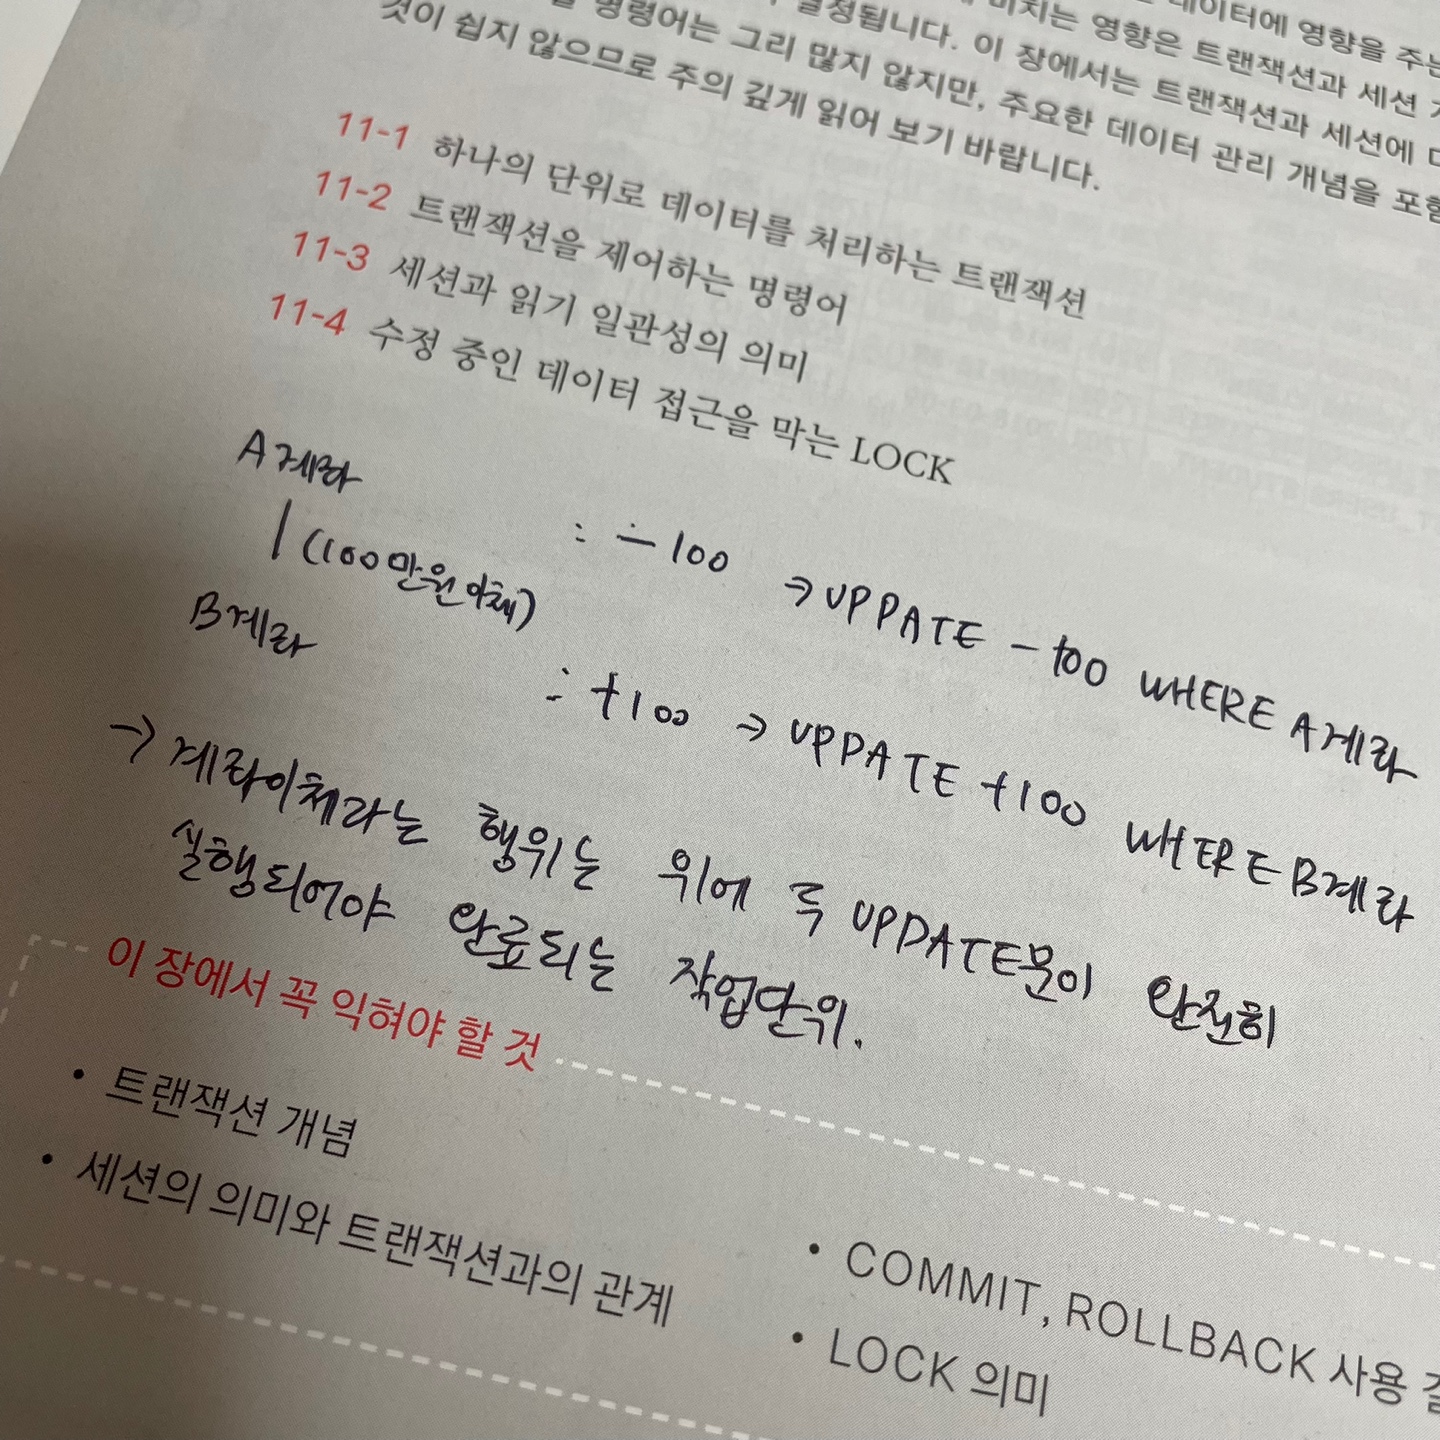 데이터에 영향을 주는
결정됩니다. 미치는 영향은 트랜잭션과 세션
명령어는 그리 많지 않지만, 이 장에서는 트랜잭션과 세션에
것이 쉽지 않으므로 주의 깊게 읽어 보기 바랍니다. 주요한 데이터 관리 개념을 포함
11-1 하나의 단위로 데이터를 처리하는 트랜잭션
11-2 트랜잭션을 제어하는 명령어
11-3 세션과 읽기 일관성의 의미
11-4 수정 중인 데이터 접근을 막는 LOCK
A계좌 : -100 → UPDATE -100 WHERE A계좌
| (100만원이체)
B계좌 : +100 → UPDATE +100 WHERE B계좌
→ 계좌이체라는 행위는 위에 두 UPDATE문이 완전히
실행되어야 완료되는 작업단위.
이 장에서 꼭 익혀야 할 것
• 트랜잭션 개념
• 세션의 의미와 트랜잭션과의 관계
• COMMIT, ROLLBACK 사용
• LOCK 의미